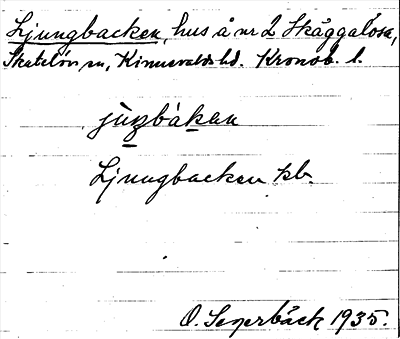 Ljungbacken, hus å nr 2 Skäggalösa,
Skatelöv sn, Kinnevalds hd. Kronob. l.
jùŋbákan
Ljungbacken kb.
O. Segerbäck 1935.